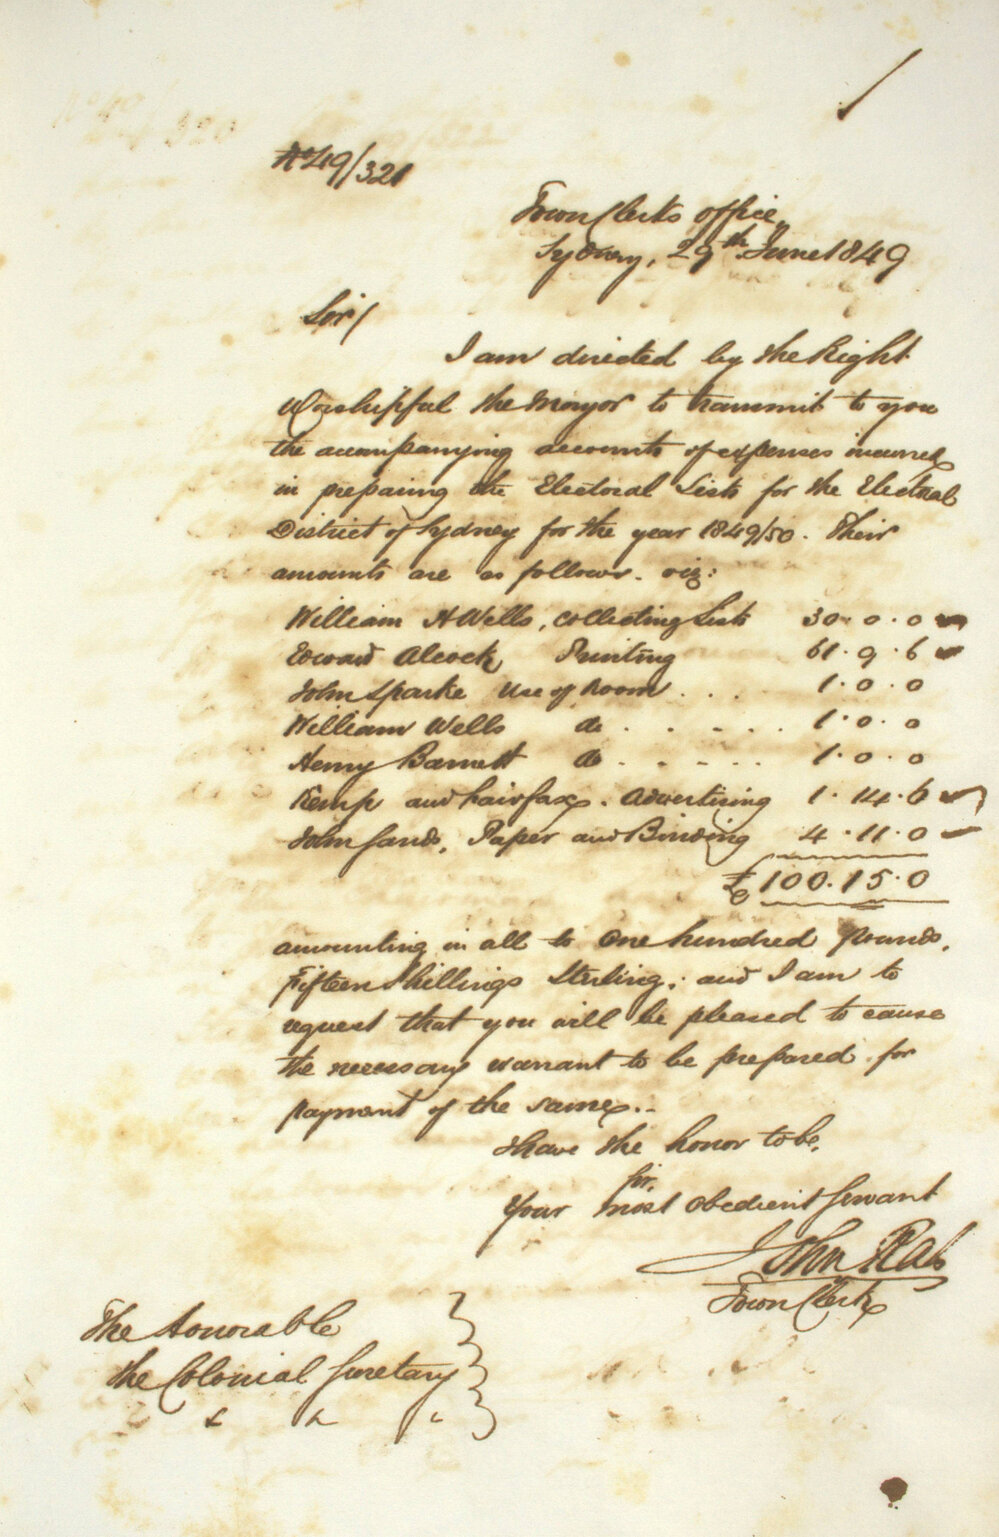 No 49/321
Town Clerks Office,
Sydney, 29th June 1849
Sir/
I am directed by the Right
Worshipful the Mayor to transmit to you
the accompanying accounts of expenses incurred
in preparing the Electoral Lists for the Electoral
District of Sydney for the year 1849/50. Their
amounts are as follows. viz:
William H Wells, Collecting Lists 30. 0. 0
Edward Alcock Printing 61. 9. 6
John Sparke Use of Room . . . 1. 0. 0
William Wells do . . . . . 1. 0. 0
Henry Barnett do . . . . . 1. 0. 0
Kemp and Fairfax. Advertising 1. 14. 6
John Sands, Paper and Binding 4. 11. 0
£100. 15. 0
amounting in all to One hundred pounds,
Fifteen Shillings Sterling; and I am to
request that you will be pleased to cause
the necessary warrant to be prepared for
payment of the same.
I have the honor to be,
Sir,
Your most obedient Servant
John Rae
Town Clerk
The Honorable
the Colonial Secretary